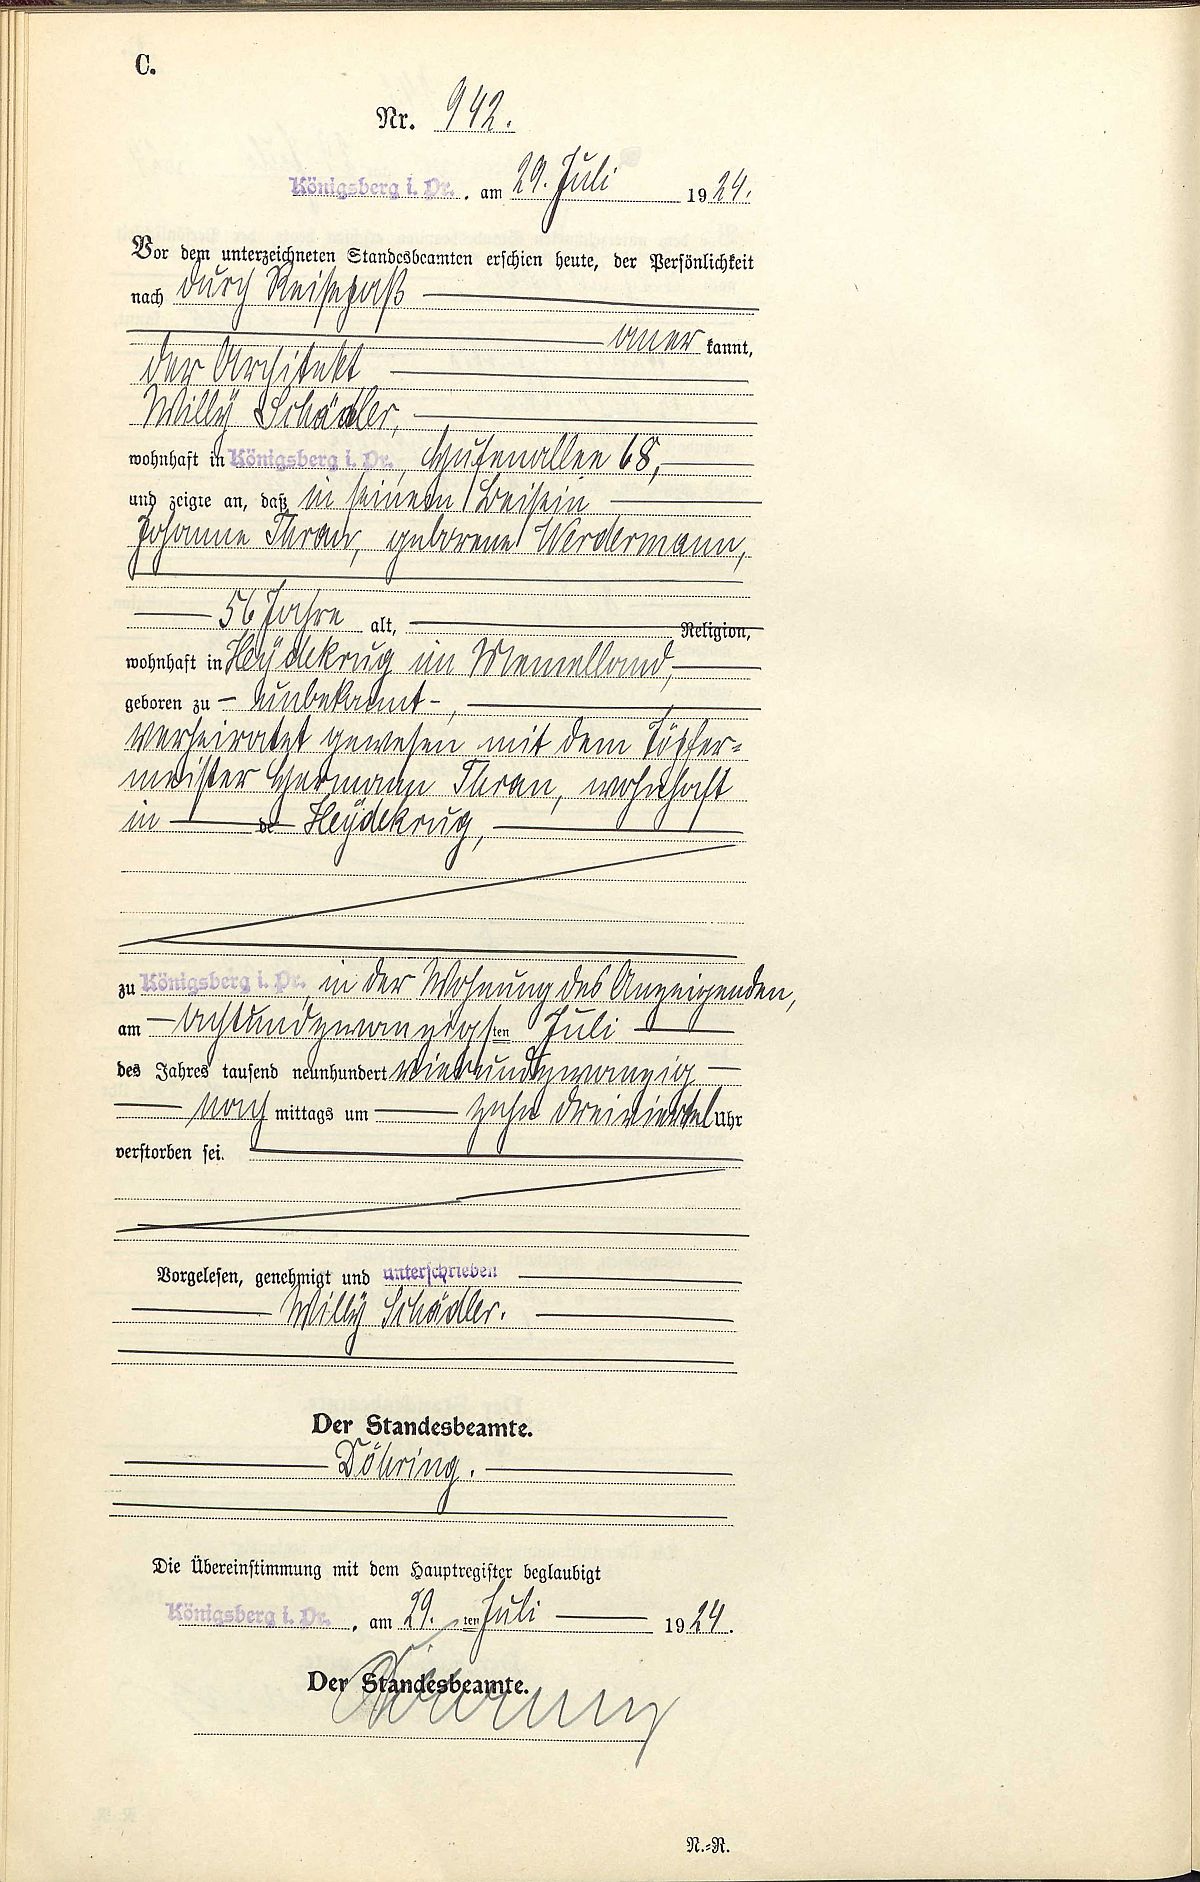 C.
Nr. 942.
Königsberg i. Pr., am 29. Juli 1924.
Vor dem unterzeichneten Standesbeamten erschien heute, der Persönlichkeit
nach durch Reisepaß
anerkannt,
der Architekt
Willy Schädler,
wohnhaft in Königsberg i. Pr., Hufenallee 68,
und zeigte an, daß in seinem Beisein
Johanne Thran, geborene Werdermann,
56 Jahre alt, Religion,
wohnhaft in Heydekrug im Memelland,
geboren zu - unbekannt -,
verheiratet gewesen mit dem Töpfer=
meister Hermann Thran, wohnhaft
in de Heydekrug,
zu Königsberg i. Pr. in der Wohnung des Anzeigenden,
am achtundzwanzigsten Juli
des Jahres tausend neunhundert vierundzwanzig
nachmittags um zehn dreiviertel Uhr
verstorben sei.
Vorgelesen, genehmigt und unterschrieben
Willy Schädler.
Der Standesbeamte.
Döhring.
Die Übereinstimmung mit dem Hauptregister beglaubigt
Königsberg i. Pr., am 29. ten Juli 1924.
Der Standesbeamte.
Döhring
N.=R.